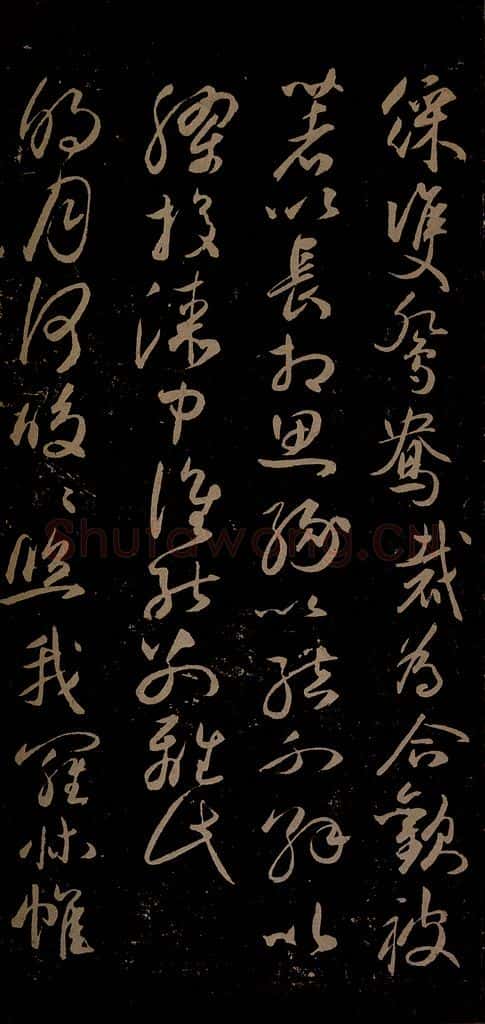 綵雙鴛鴦裁為合歡被
著以長相思緣以結不解以
膠投漆中誰能別離此
明月何皎〻照我羅牀幃
Shufawang.cn